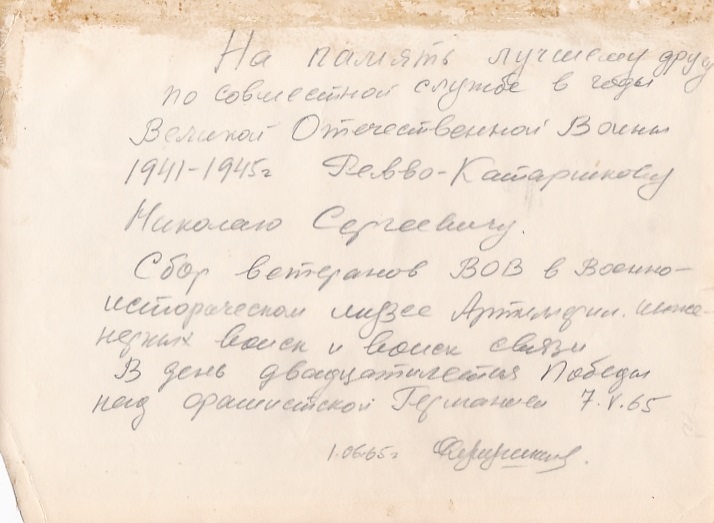 На память лучшему другу
по совместной службе в годы
Великой Отечественной Войны
1941-1945г
Николаю Сергеевичу.
Сбор ветеранов ВОВ в Военно-
историческом музее Артиллерии. инже-
нерных войск и войск связи
В день двадцатилетия Победы
над фашистской Германией 7.V.65
1.06.65г